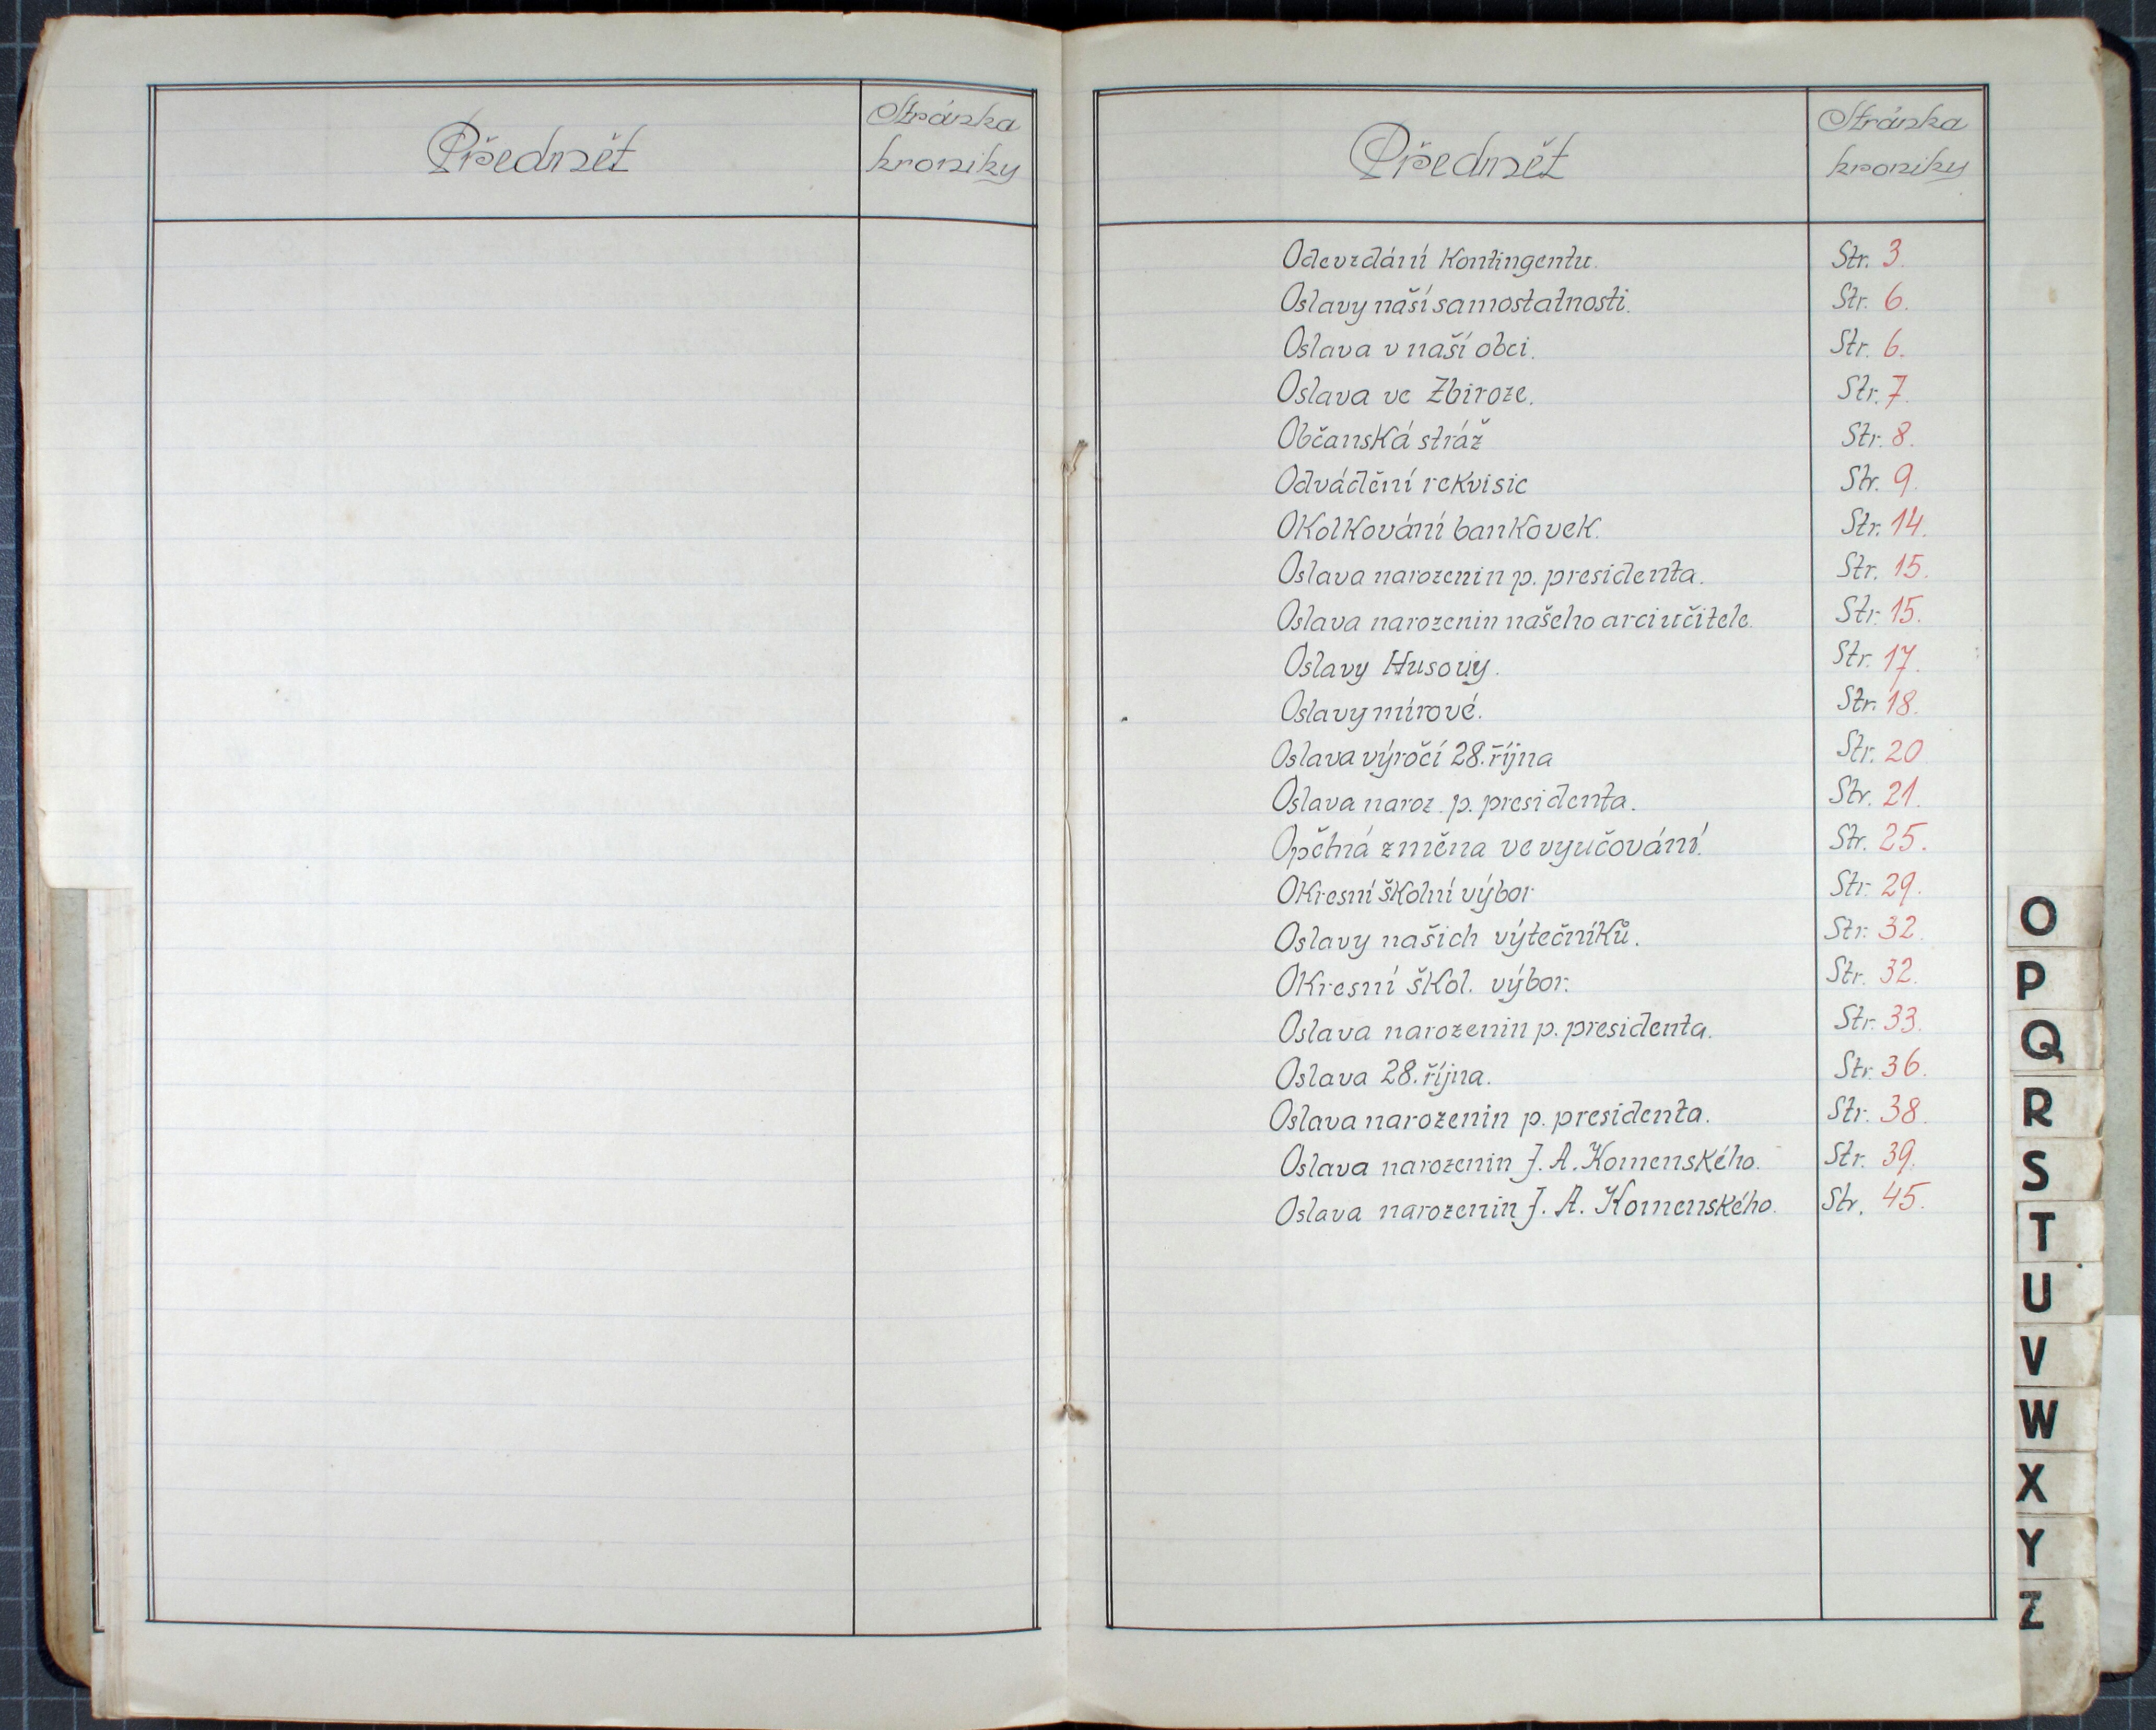 Předmět
Stránka
kroniky
Předmět
Stránka
kroniky
Odevzdání kontingentu. Str. 3.
Oslavy naší samostatnosti. Str. 6.
Oslava v naší obci. Str. 6.
Oslava ve Zbiroze. Str. 7.
Občanská stráž Str. 8.
Odvádění rekvisic Str. 9.
Okolkování bankovek. Str. 14.
Oslava narozenin p. presidenta. Str. 15.
Oslava narozenin našeho arciučitele. Str. 15.
Oslavy Husovy. Str. 17.
Oslavy mírové. Str. 18.
Oslava výročí 28. října Str. 20
Oslava naroz. p. presidenta. Str. 21.
Opětná změna ve vyučování. Str. 25.
Okresní školní výbor Str. 29.
Oslavy našich výtečníků. Str. 32.
Okresní škol. výbor. Str. 32.
Oslava narozenin p. presidenta. Str. 33.
Oslava 28. října. Str. 36.
Oslava narozenin p. presidenta. Str. 38.
Oslava narozenin J. A. Komenského. Str. 39.
Oslava narozenin J. A. Komenského. Str. 45.
O
P
Q
R
S
T
U
V
W
X
Y
Z